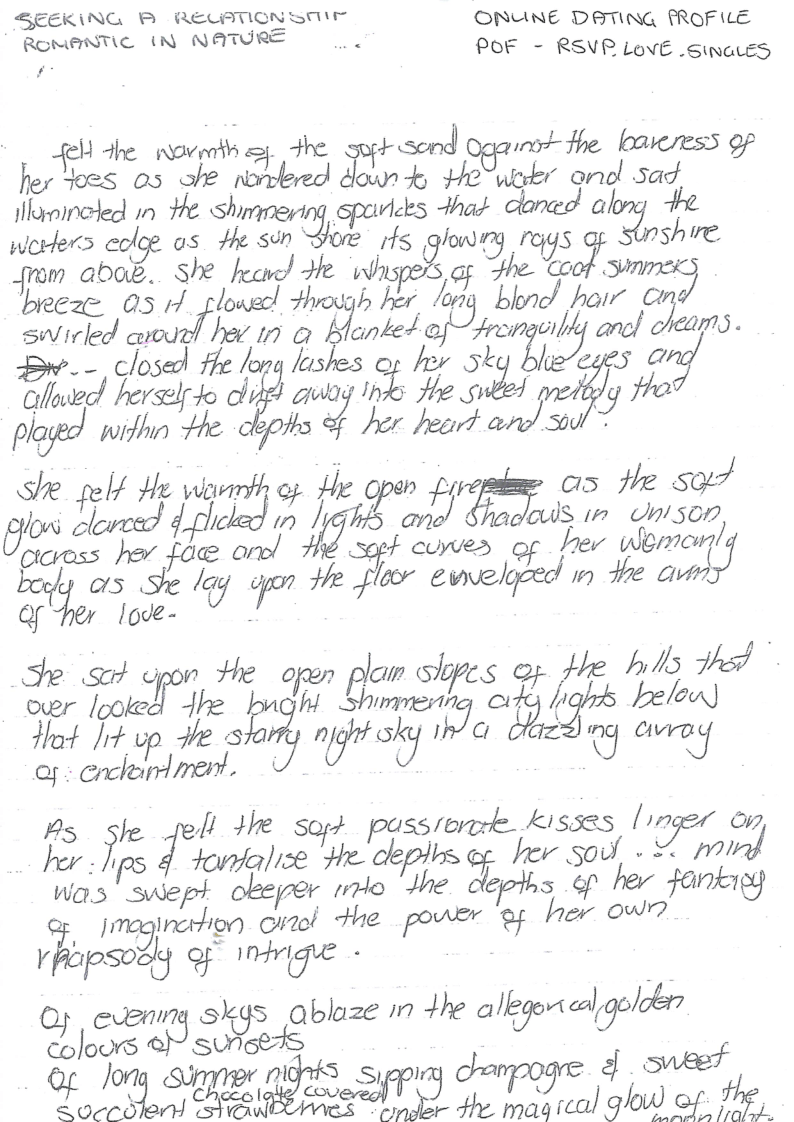 SEEKING A RELATIONSHIP
ROMANTIC IN NATURE ....
ONLINE DATING PROFILE
POF - RSVP.LOVE.SINGLES
felt the warmth of the soft sand against the bareness of
her toes as she wandered down to the water and sat
illuminated in the shimmering sparkles that danced along the
waters edge as the sun shore its glowing rays of sunshire
from above. She heard the whispers of the cool summers
breeze as it flowed through her long blond hair and
swirled around her in a blanket of tranquility and dreams.
-- closed the long lashes of her sky blue eyes and
allowed herself to drift away into the sweet melody that
played within the depths of her heart and soul.
She felt the warmth of the open fire as the soft
glow danced & flicked in lights and shadows in unison
across her face and the soft curves of her womanly
body as she lay upon the floor enveloped in the arms
of her love.
She sat upon the open plain slopes of the hills that
over looked the bright shimmering city lights below
that lit up the starry night sky in a dazzling array
of enchantment.
As she felt the soft passionate kisses linger on
her lips & tantalise the depths of her soul ... mind
was swept deeper into the depths of her fantasy
of imagination and the power of her own
rhapsody of intrigue.
Of evening skys ablaze in the allegorical golden
colours of sunsets
Of long summer nights sipping champagne & sweet
succulent chocolate covered strawberries under the magical glow of the
moonlight.